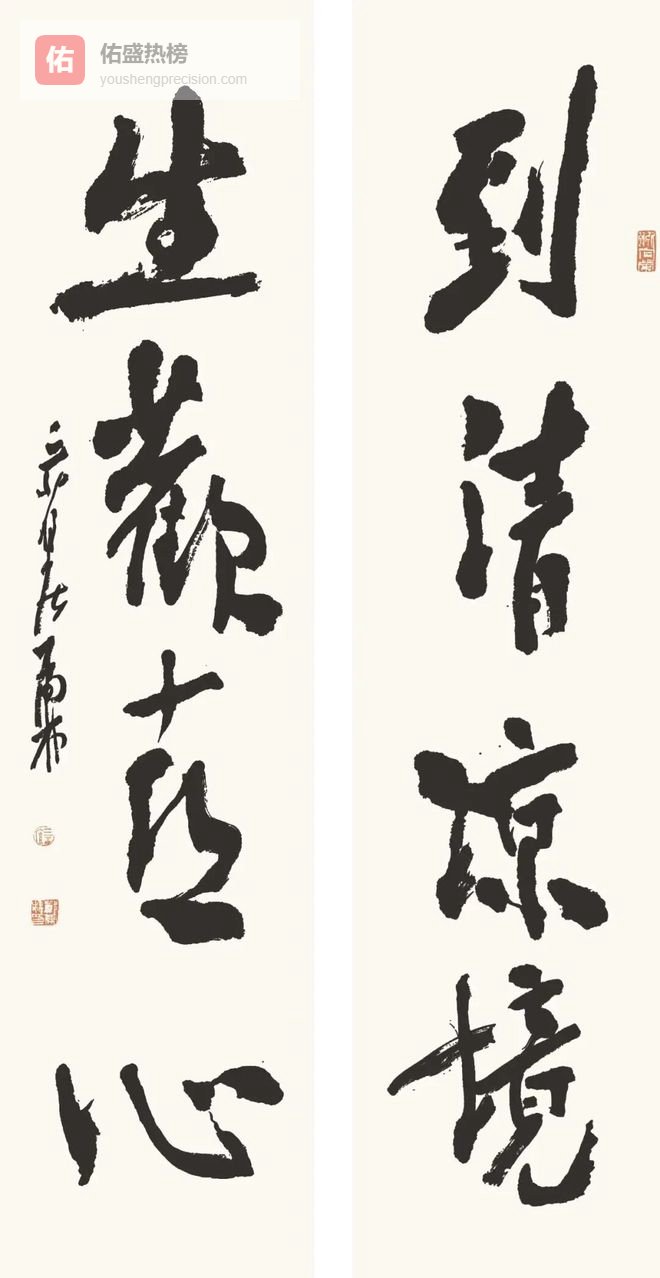 佑
佑盛热榜
youshengprecision.com
到清凉境
生歡喜心